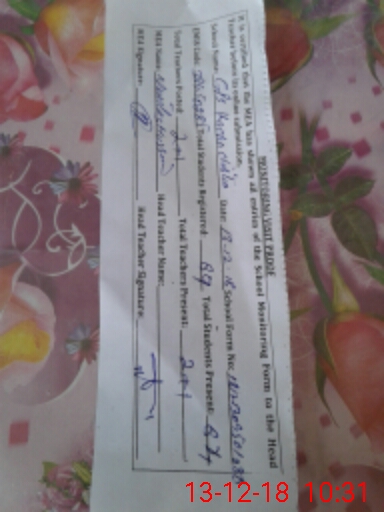 MONITORING VISIT PROOF
It is certified that the MEA has shown all entries of the School Monitoring Form to the Head
Teacher before its online submission.
School Name: GPS Date: 13-12-18 School Form No:
EMIS Code: Total Students Registered: 89 Total Students Present: 87
Total Teachers Posted: 2+1 Total Teachers Present: 2+1
MEA Name: Head Teacher Name:
MEA Signature: Head Teacher Signature:
13-12-18 10:31